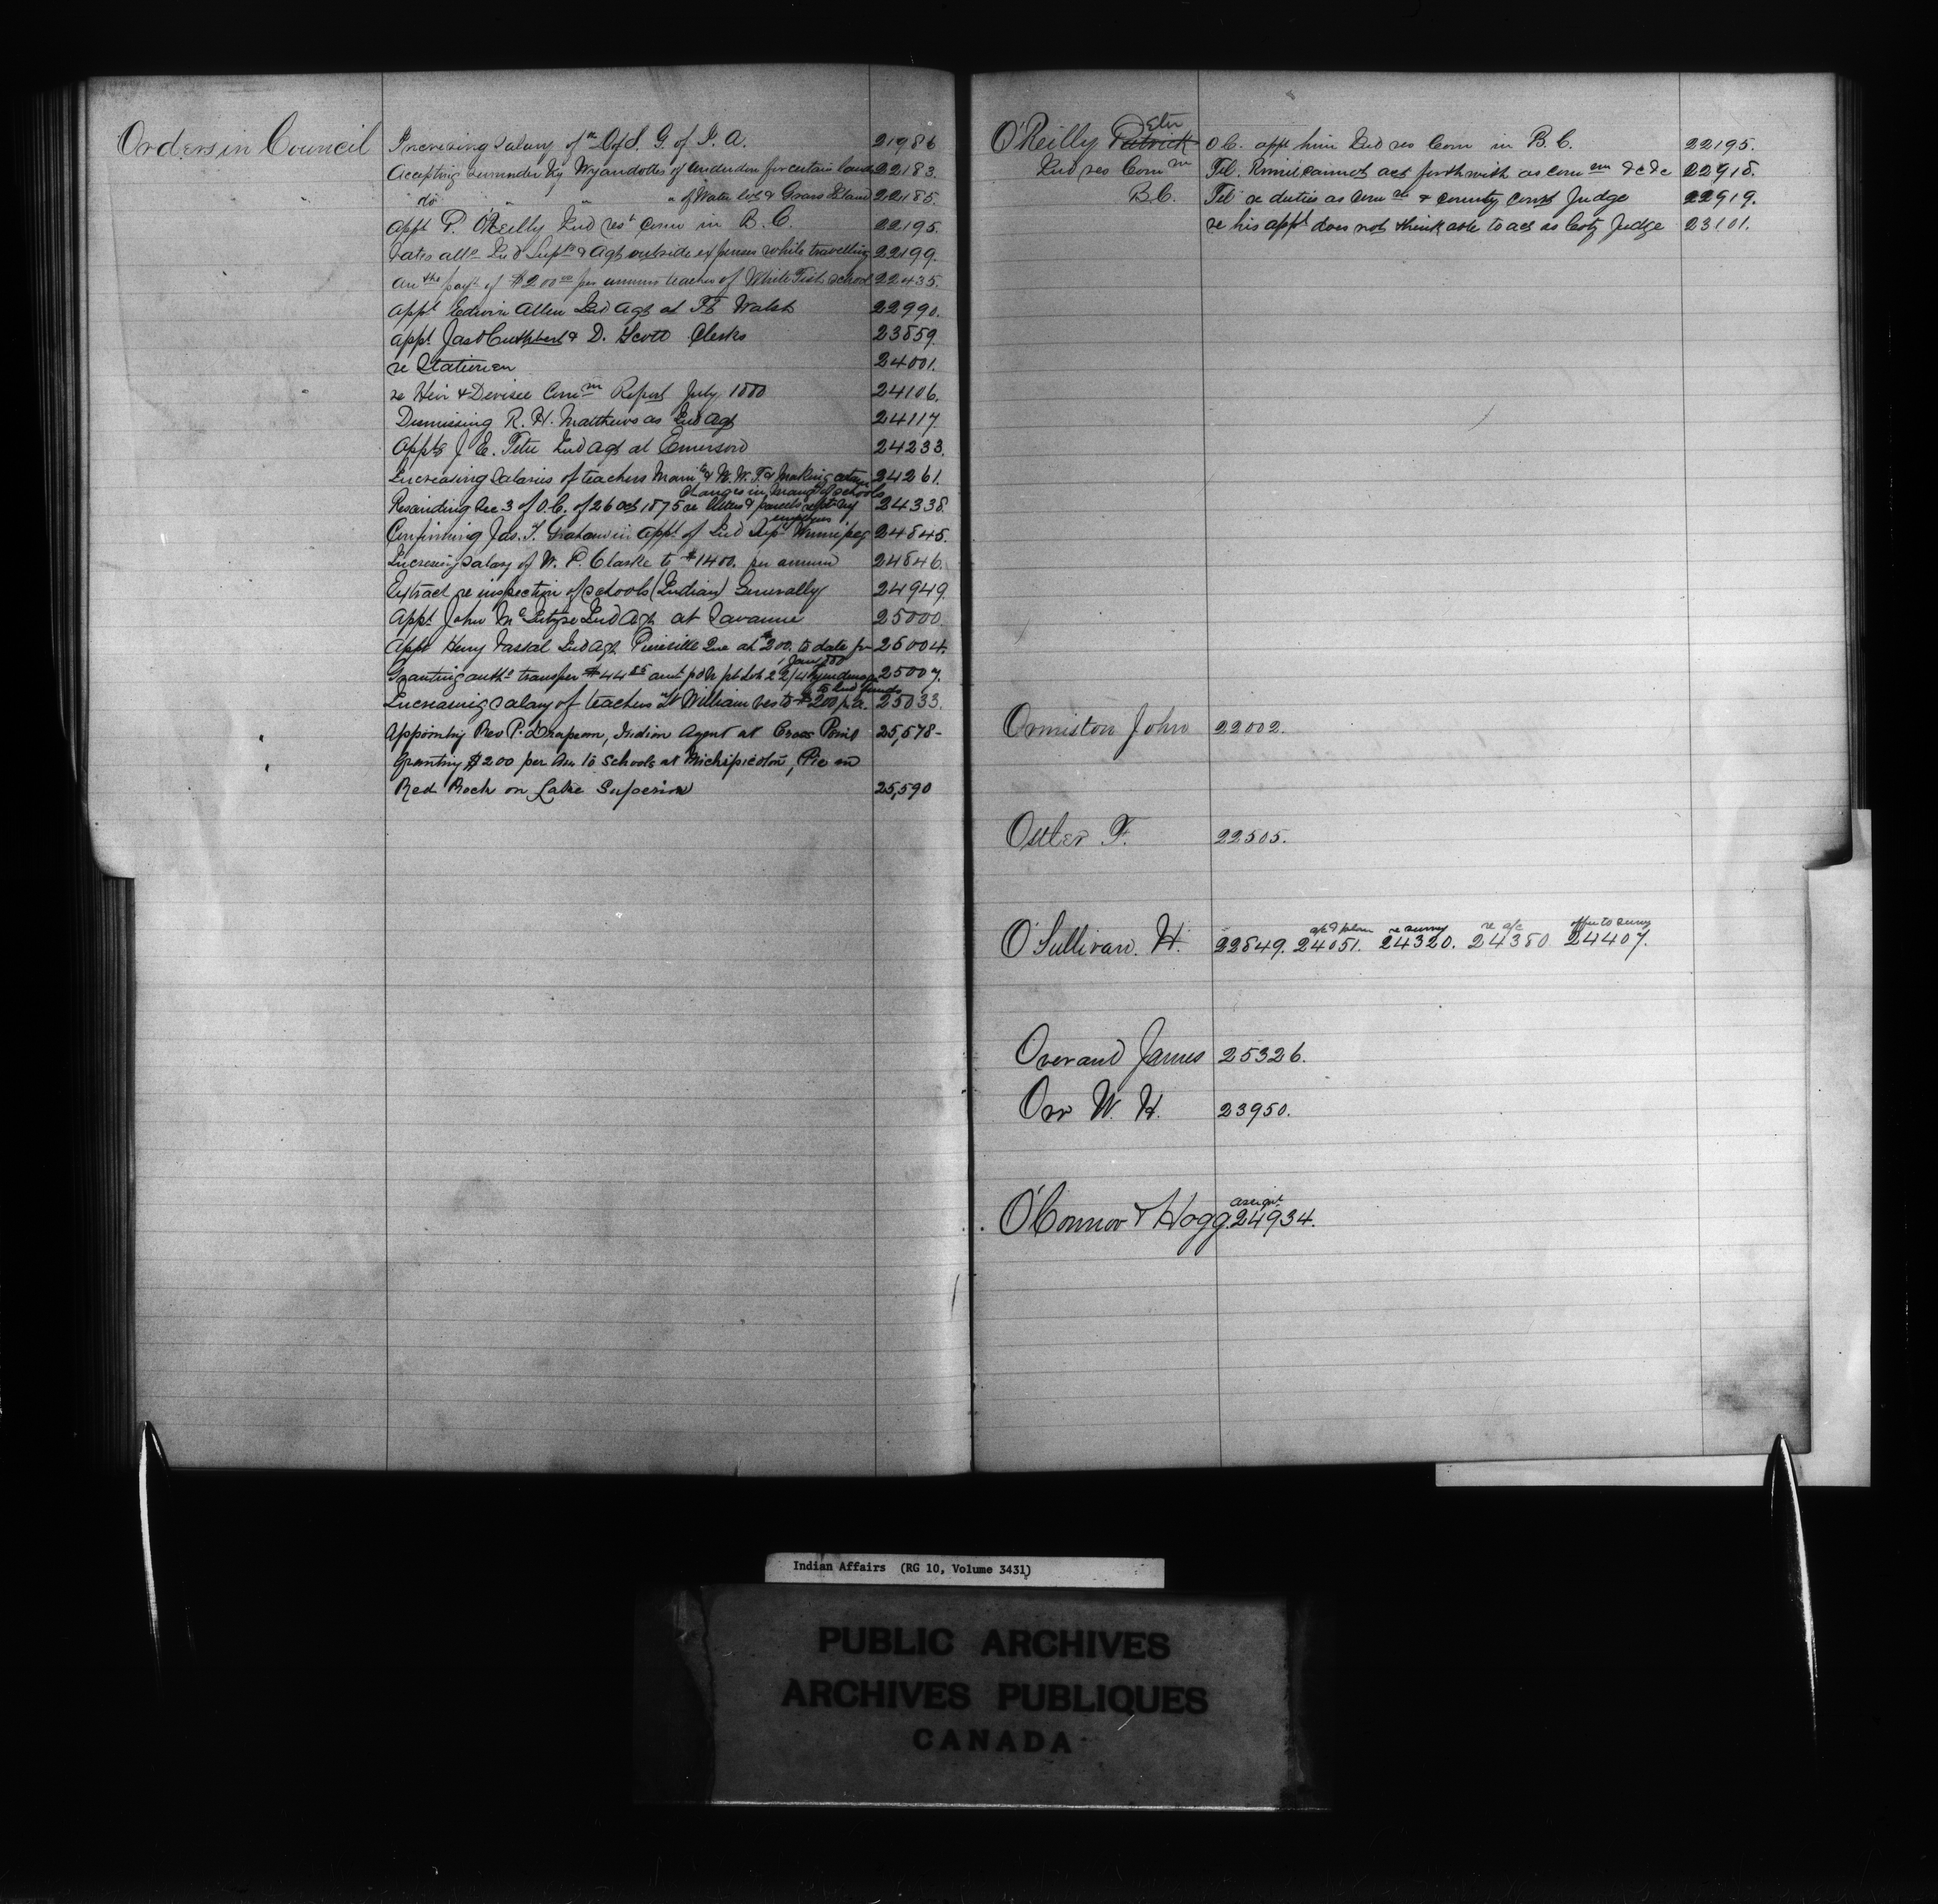 Orders in Council
Increasing salary of D. of S. G. of I. A. 21986
Accepting surrender by Wyandottes of Anderdon for certain lands 22183.
do " " " of Water lots & Grass Island 22185.
Appt P. O'Reilly Ind res Comr in B. C. 22195.
rates allce Ind Supts & Agts outside expenses while travelling 22199.
authe payt of $200 00 per annum teacher of White Fish school 22435.
appt Edwin Allen Ind Agt at Ft Walsh 22990.
appt Jas Cuthbert & D. Scott Clerks 23859.
re 24001.
re Heir & Devisee Comm Report July 1880 24106.
Dismissing R. H. Matthews as Ind Agt 24117.
Appts J. E. Tetu Ind Agt at Emerson 24233.
Increasing salaries of teachers Mani & N. W. T. & making certain 24261.
changes in mangt of schools
Rescinding Sec 3 of O.C. of 26 Oct 1875 re letters & parcels 24338.
Confirming Jas. F. Graham in appt of Ind Supt Winnipeg 24845.
Increasing salary of W. P. Clarke to $1400. per annum 24846.
Extract re inspection of schools (Indian) Generally 24949.
Appt John McIntyre Ind Agt at Savanne 25000.
Appt Henry Vassal Ind Agt Pierreville Que at $200. to date fr 25004.
1 Jany 80
Granting authy transfer $44 85 amt pd on pt lot 22/4 Tyendinaga 25007.
to Ind funds
Increasing salary of teachers Ft William res to $200 p.a. 25033.
Appointing Rev P. Drapeau, Indian Agent at Cross Point 25,578-
Granting $200 per Ann to Schools at Michipicoton, Pic on
Red Rock on Lake Superior 25,590
O'Reilly Patrick eter O.C. appt him Ind res Com in B. C. 22195.
Ind res Comm Tel. cannot act forthwith as comm &c &c 22918.
B.C. Tel re duties as Comr & County Court Judge 22919.
re his appt does not think able to act as Coty Judge 23101.
Ormiston John 22002.
Osller F. 22505.
a/c & plan re survey re a/c offer to survey
O'Sullivan. H. 22849. 24051. 24320. 24380 24407.
Overand James 25326.
Orr W. H. 23950.
assignt
O'Connor & Hogg. 24934.
Indian Affairs (RG 10, Volume 3431)
PUBLIC ARCHIVES
ARCHIVES PUBLIQUES
CANADA